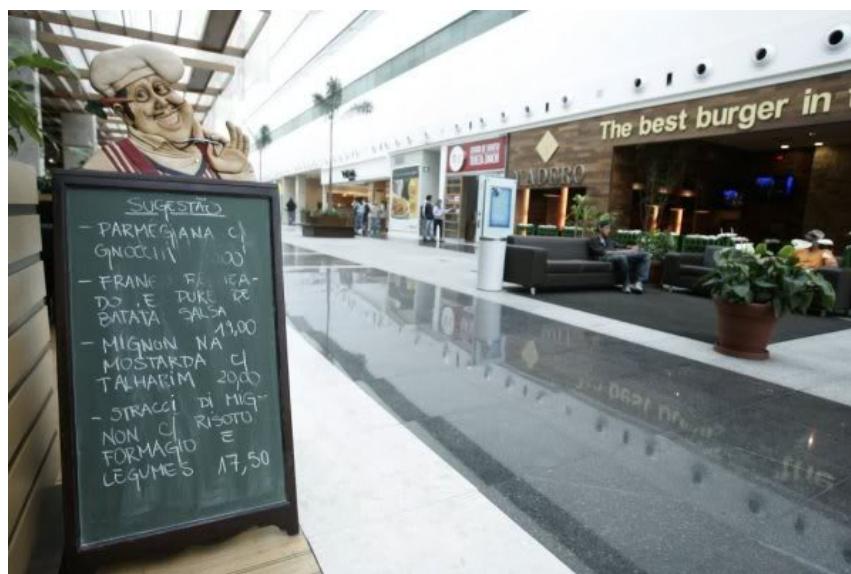 SUGESTÃO
- PARMEGIANA C/
GNOCCHI
- FRANGO
DO E PURE DE
BATATA SALSA
19,00
- MIGNON NA
MOSTARDA C/
TALHARIM 20,00
- STRACCI DI MIG-
NON C/ RISOTO
FORMAGIO E
LEGUMES 17,50
MADERO
The best burger in